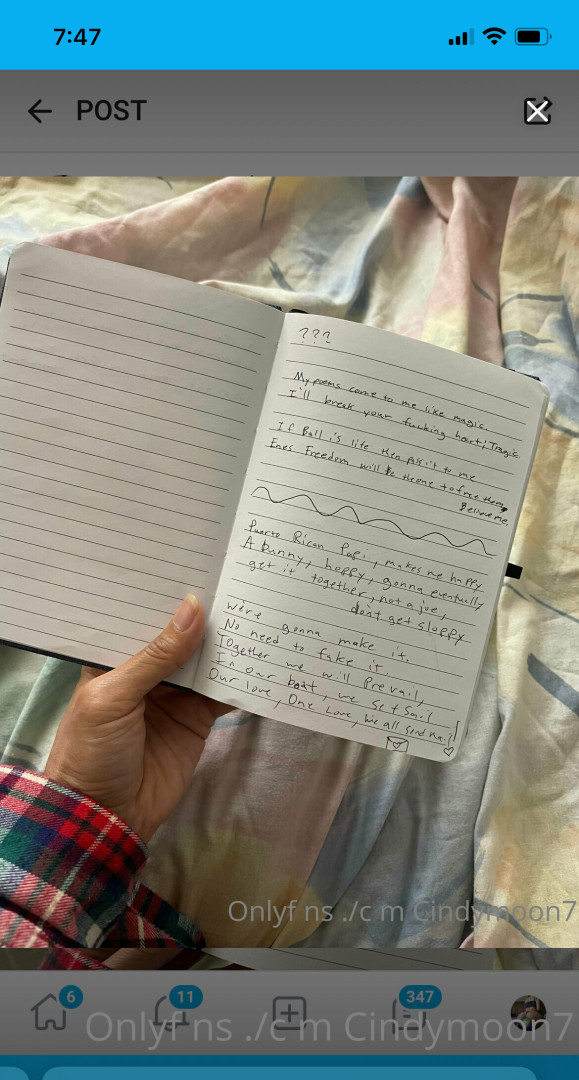 7:47
POST
???
My poems come to me like magic.
I'll break your fucking heart; Tragic
If Ball is life then pass it to me
Ends Freedom will be theone tofree them,
Believe me.
Puerto Rican Papi, makes me happy
A bunny, hoppy, gonna eventually
get it together, not a joe,
don't get sloppy
We're gonna make it.
No need to fake it.
Together we will Prevail,
In our boat, we set Sail
Our love, One Love, we all send mail
Onlyf ns ./c m Cindymoon7
6
11
347
Onlyf ns ./c m Cindymoon7